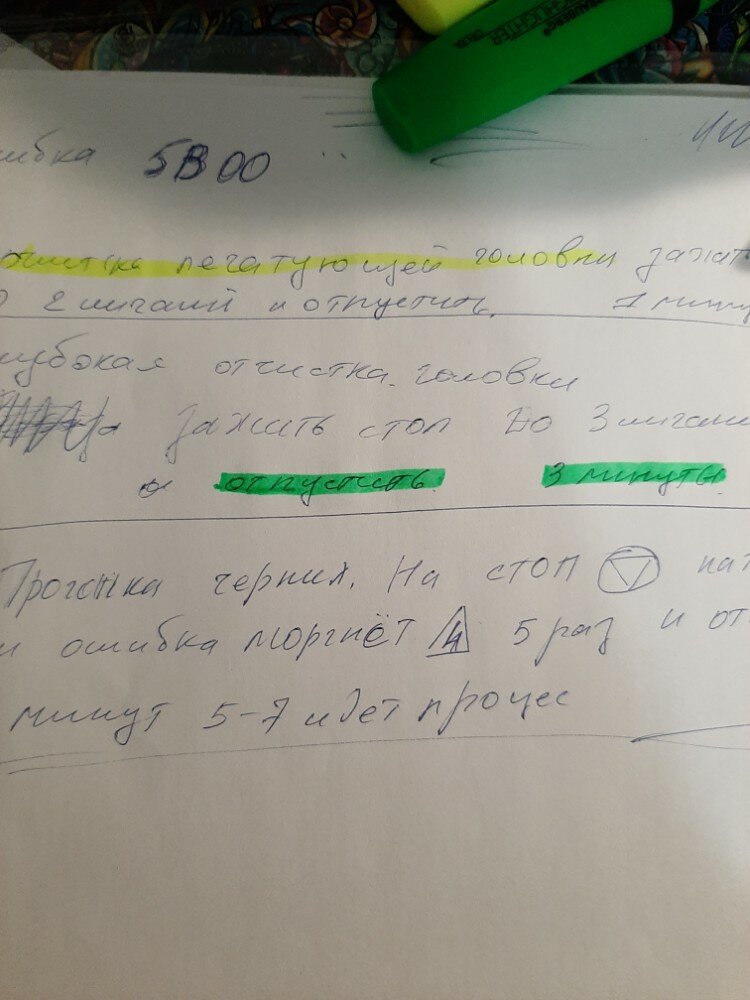 HIGHLIGHTER
шибка 5B00
отчистка печатующей головки зажат
о 2 мигани и отпустить. 1 мину
лубокая отчистка головки
зажить стоп до 3 мигани
и отпустить. 3 минуты
Прогонка чернил. На стоп наж
и ошибка моргнёт 5 раз и от
минут 5-7 идет процес